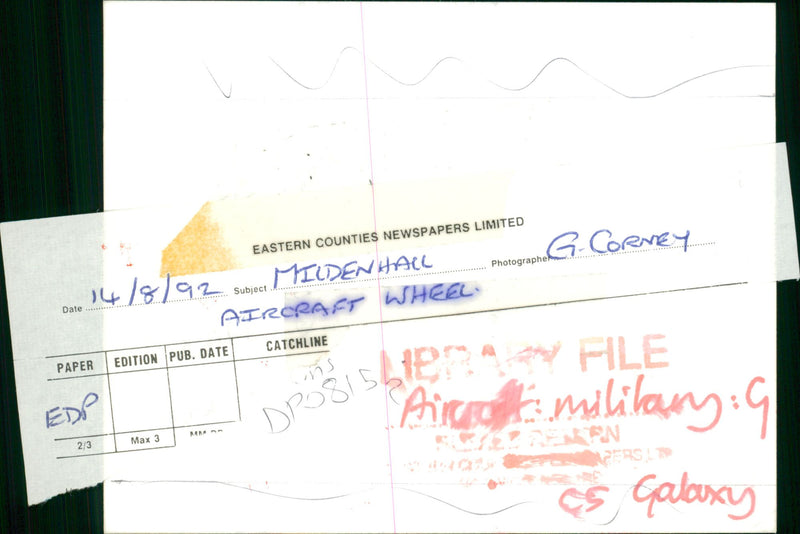 EASTERN COUNTIES NEWSPAPERS LIMITED
Date 14/8/92 Subject MILDENHALL Photographer G. CORNEY
AIRCRAFT WHEEL.
PAPER EDITION PUB. DATE CATCHLINE
EDP
2/3 Max 3
LIBRARY FILE
Aircraft: military: G
PLEASE RETURN
C5 Galaxy